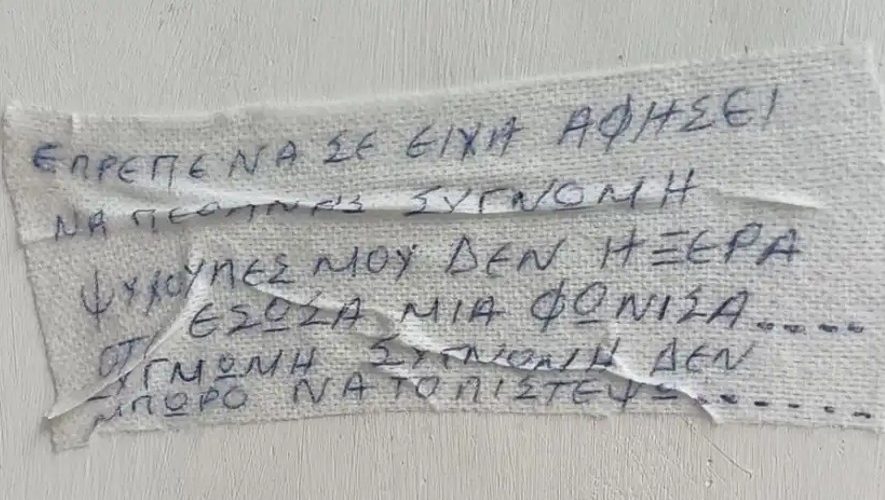 ΕΠΡΕΠΕ ΝΑ ΣΕ ΕΙΧΑ ΑΦΗΣΕΙ
ΝΑ ΠΕΘΑΝΕΙΣ ΣΥΓΝΩΜΗ
ΨΥΧΟΥΛΕΣ ΜΟΥ ΔΕΝ ΗΞΕΡΑ
ΟΤΙ ΕΣΩΣΑ ΜΙΑ ΦΩΝΙΣΑ.....
ΣΥΓΝΩΜΗ ΣΥΓΝΩΜΗ ΔΕΝ
ΜΠΩΡΟ ΝΑ ΤΟ ΠΙΣΤΕΨΩ.......